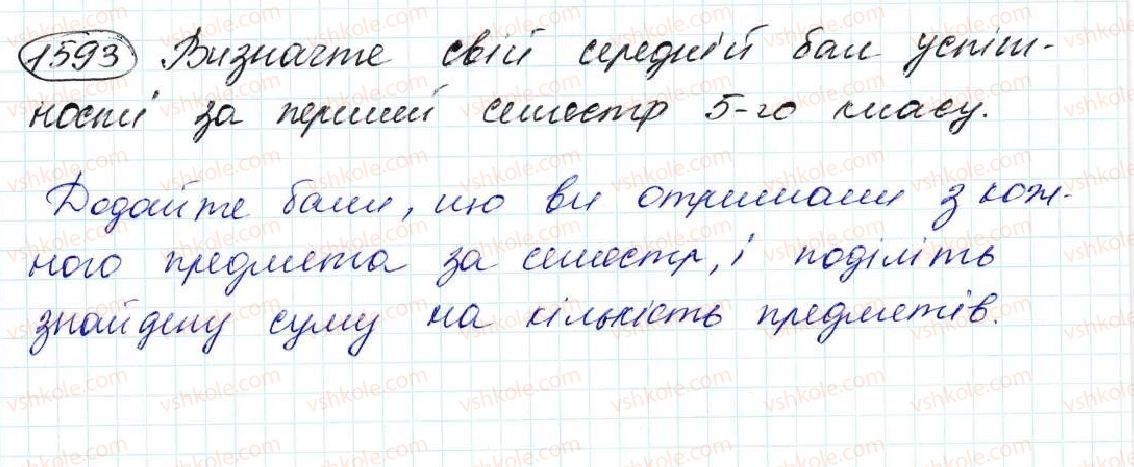 1593 Визначте свій середній бал успіш-
ності за перший семестр 5-го класу.
Додайте бали, що ви отримали з кож-
ного предмета за семестр, і поділіть
знайдену суму на кількість предметів.